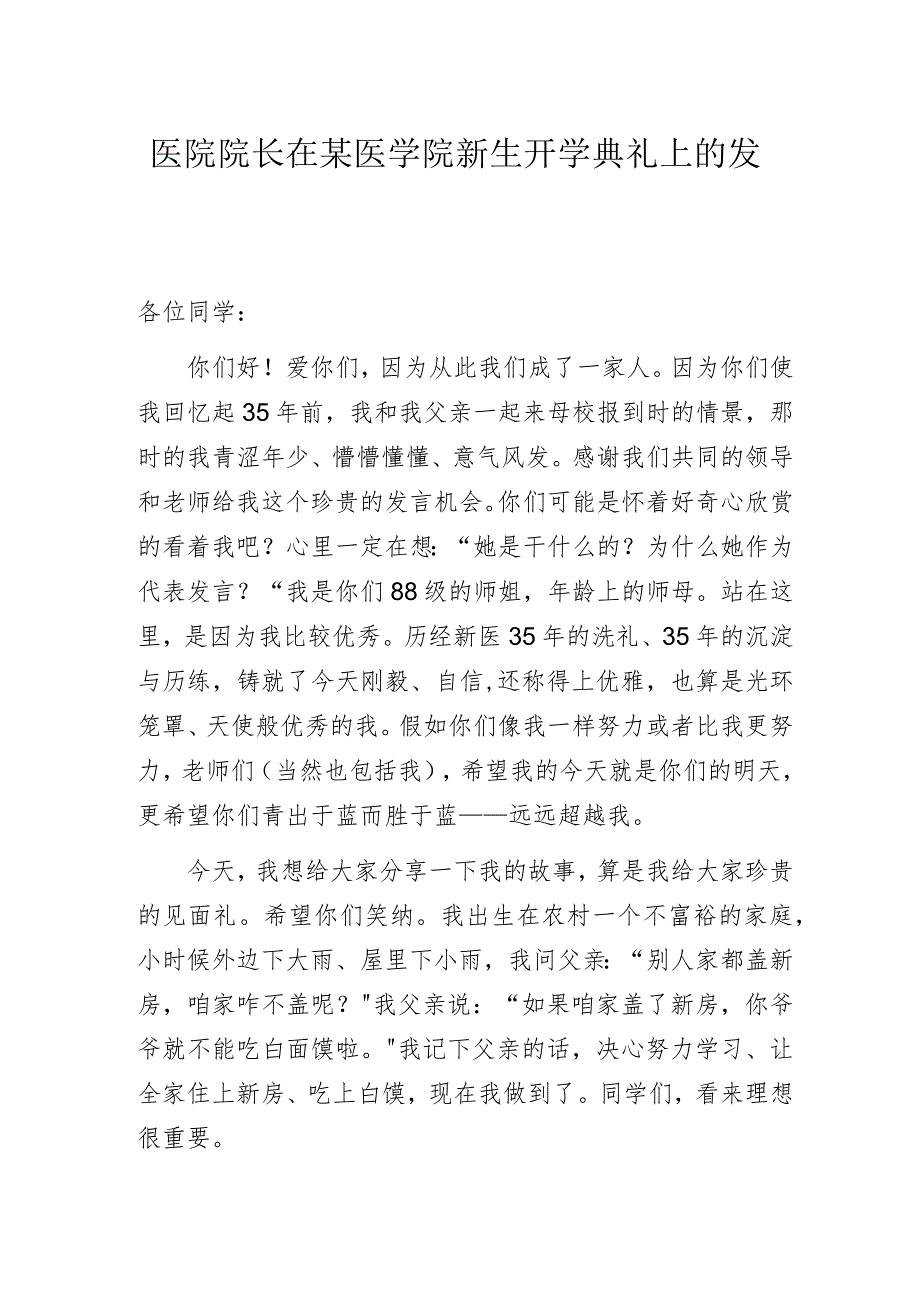 医院院长在某医学院新生开学典礼上的发
各位同学：
你们好！爱你们，因为从此我们成了一家人。因为你们使
我回忆起35年前，我和我父亲一起来母校报到时的情景，那
时的我青涩年少、懵懵懂懂、意气风发。感谢我们共同的领导
和老师给我这个珍贵的发言机会。你们可能是怀着好奇心欣赏
的看着我吧？心里一定在想：“她是干什么的？为什么她作为
代表发言？“我是你们88级的师姐，年龄上的师母。站在这
里，是因为我比较优秀。历经新医35年的洗礼、35年的沉淀
与历练，铸就了今天刚毅、自信,还称得上优雅，也算是光环
笼罩、天使般优秀的我。假如你们像我一样努力或者比我更努
力，老师们（当然也包括我），希望我的今天就是你们的明天，
更希望你们青出于蓝而胜于蓝——远远超越我。
今天，我想给大家分享一下我的故事，算是我给大家珍贵
的见面礼。希望你们笑纳。我出生在农村一个不富裕的家庭，
小时候外边下大雨、屋里下小雨，我问父亲：“别人家都盖新
房，咱家咋不盖呢？"我父亲说：“如果咱家盖了新房，你爷
爷就不能吃白面馍啦。"我记下父亲的话，决心努力学习、让
全家住上新房、吃上白馍，现在我做到了。同学们，看来理想
很重要。